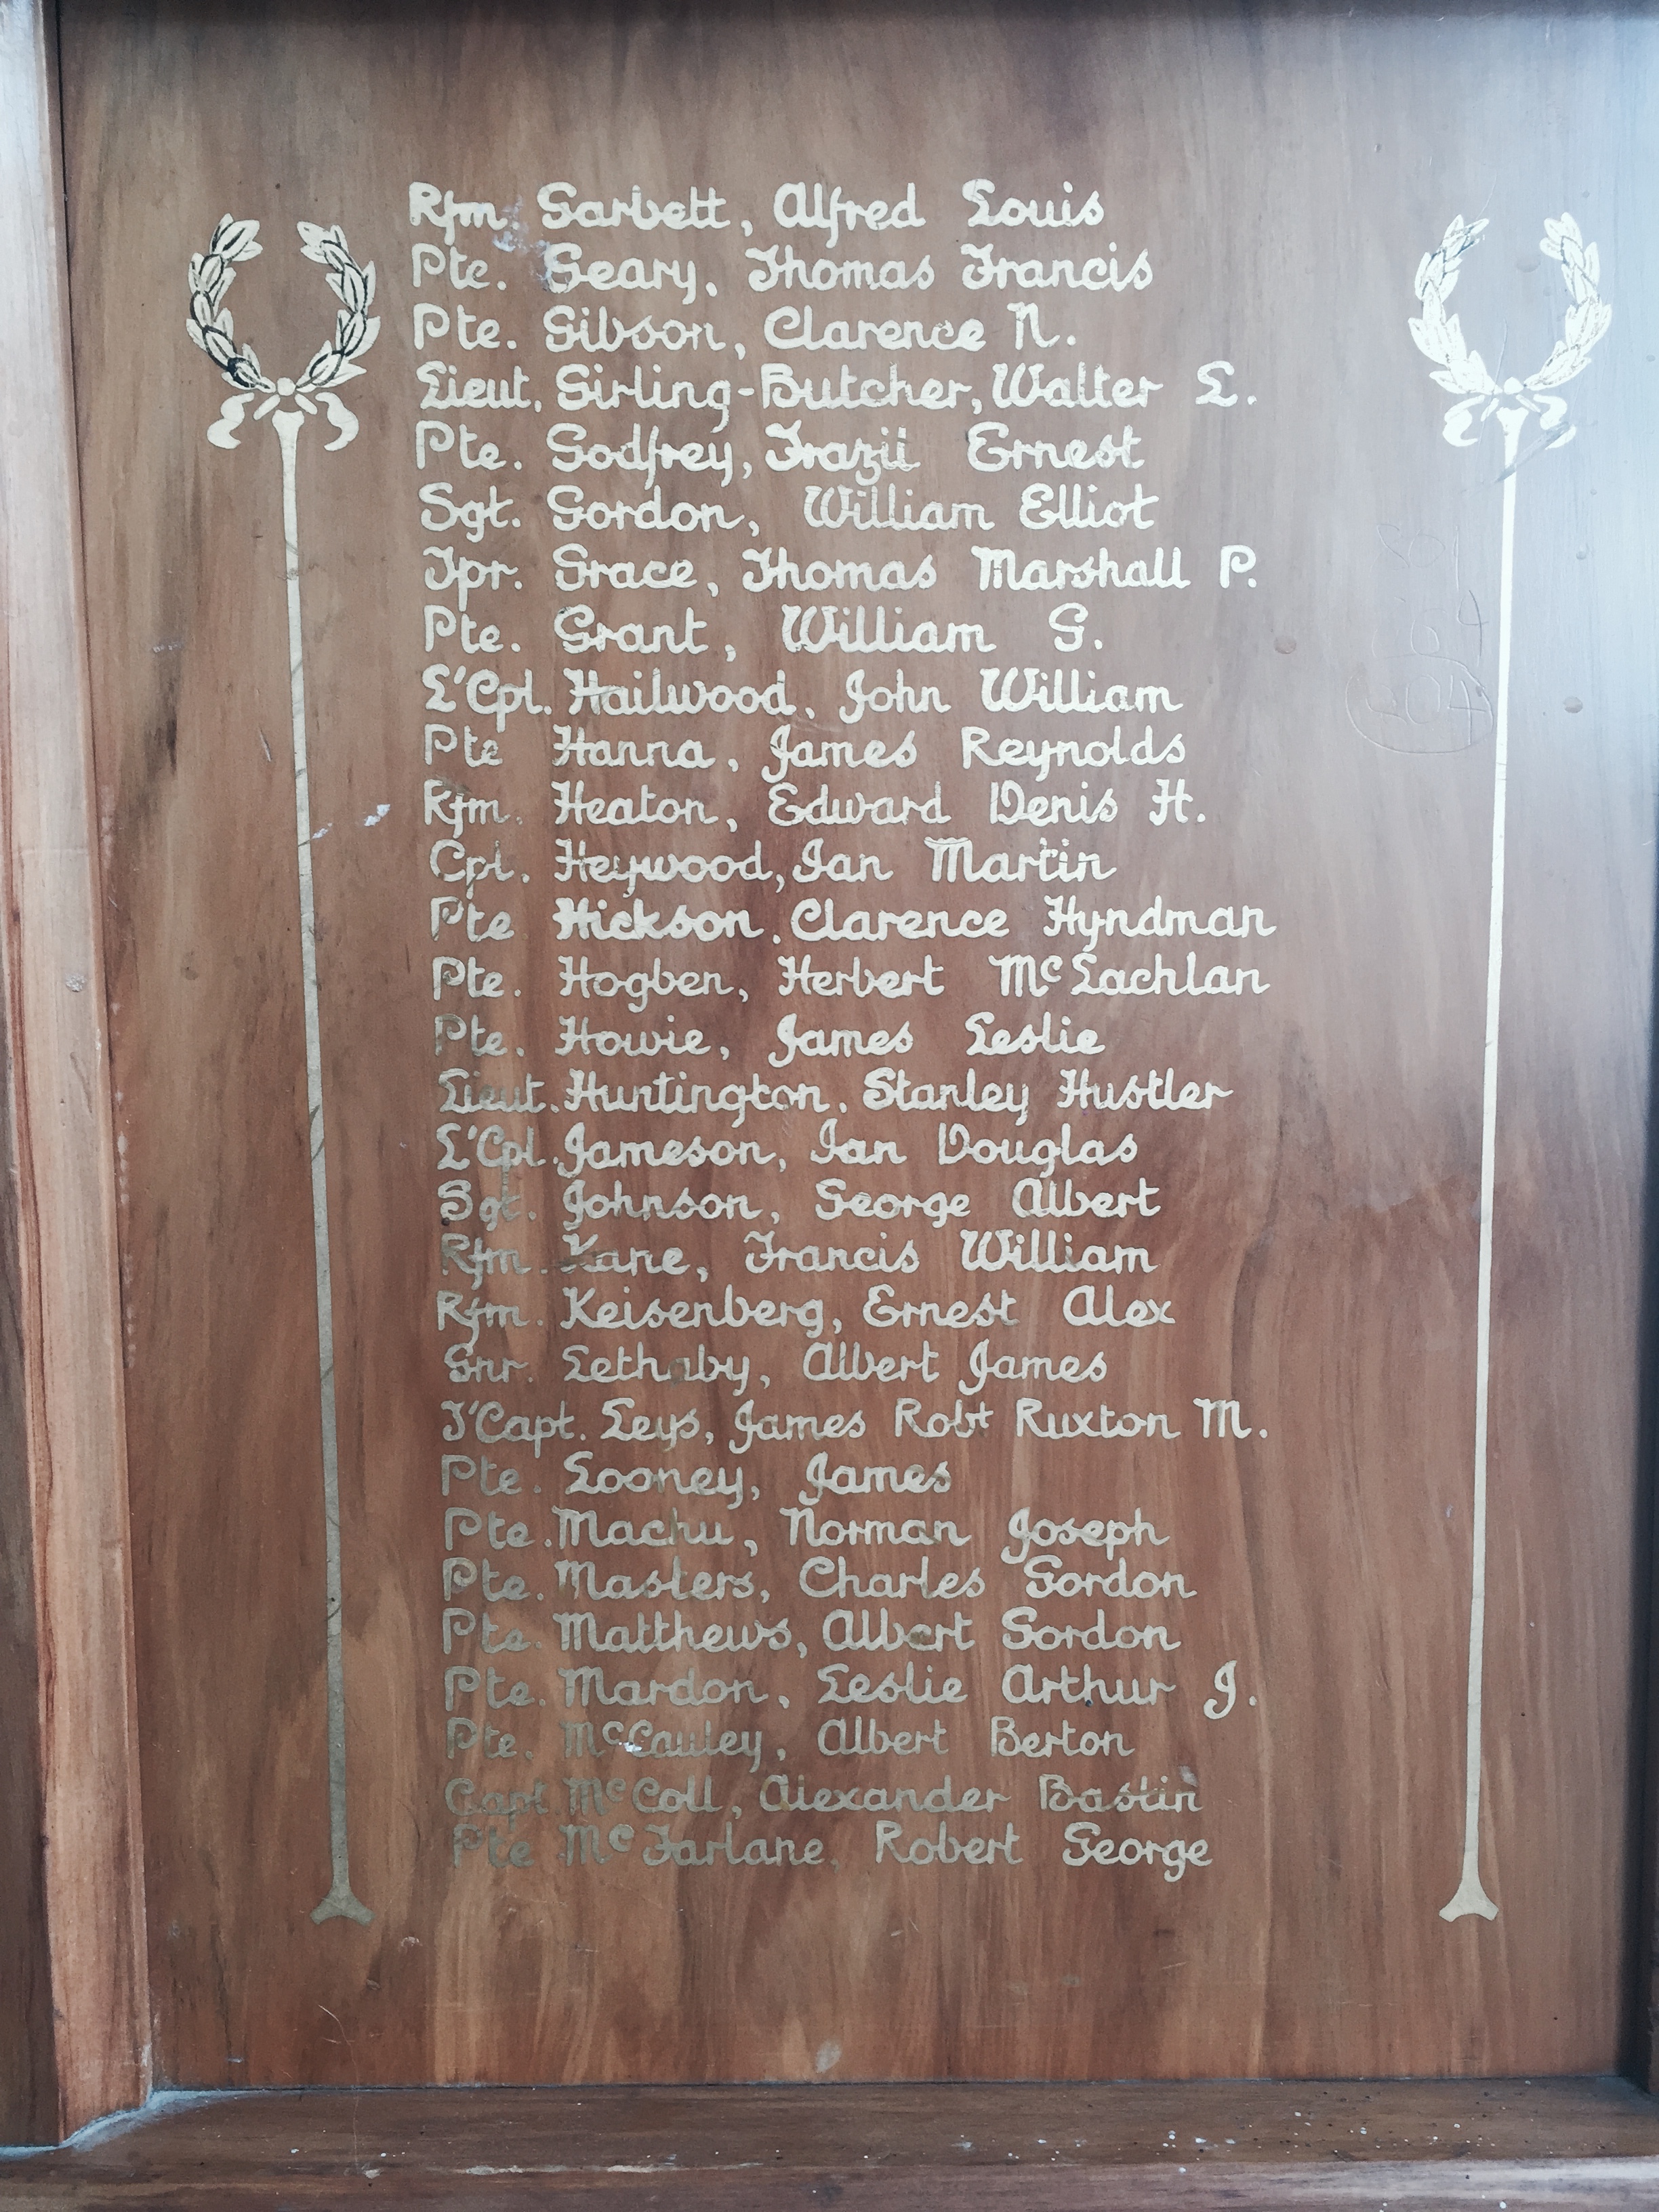 Rfm. Garbett, Alfred Louis
Pte. Geary, Thomas Francis
Pte. Gibson, Clarence N.
Lieut. Girling-Butcher, Walter L.
Pte. Godfrey, Ernest
Sgt. Gordon, William Elliot
Tpr. Grace, Thomas Marshall P.
Pte. Grant, William G.
L'Cpl. Hailwood, John William
Pte Hanna, James Reynolds
Rfm. Heaton, Edward Denis H.
Cpl. Heywood, Ian Martin
Pte Hickson, Clarence Hyndman
Pte. Hogben, Herbert McLachlan
Pte. Howie, James Leslie
Lieut. Huntington, Stanley Hustler
L'Cpl. Jameson, Ian Douglas
Sgt. Johnson, George Albert
Rfm. Kane, Francis William
Rfm. Keisenberg, Ernest Alex
Gnr. Lethaby, Albert James
T'Capt. Leys, James Robt Ruxton M.
Pte. Looney, James
Pte. Machu, Norman Joseph
Pte. Masters, Charles Gordon
Pte. Matthews, Albert Gordon
Pte. Mardon, Leslie Arthur J.
Pte. McCauley, Albert Berton
Capt. McColl, Alexander Bastin
Pte McFarlane, Robert George